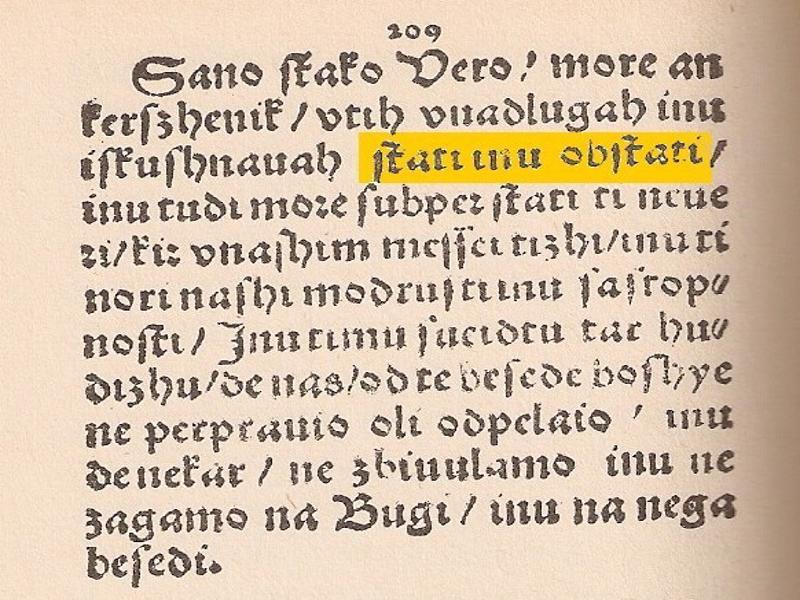 209
Sano ſtako Vero/ more an
kerſzhenik/ vtih vnadlugah inu
iſkuſhnauah ſtati inu obſtati/
inu tudi more ſubper ſtati ti neue
ri/kir vnaſhim meſſei tizhi/inu ti
nori naſhi modruſti inu ſaſtop⸗
noſti/ Inu timu ſueidtu tar hu⸗
dizhu/de nas/od te beſede boſhye
ne perprauio oli odpelaio / inu
de nekar / ne zbiuulamo inu ne
zagamo na Bugi/ inu na nega
beſedi.